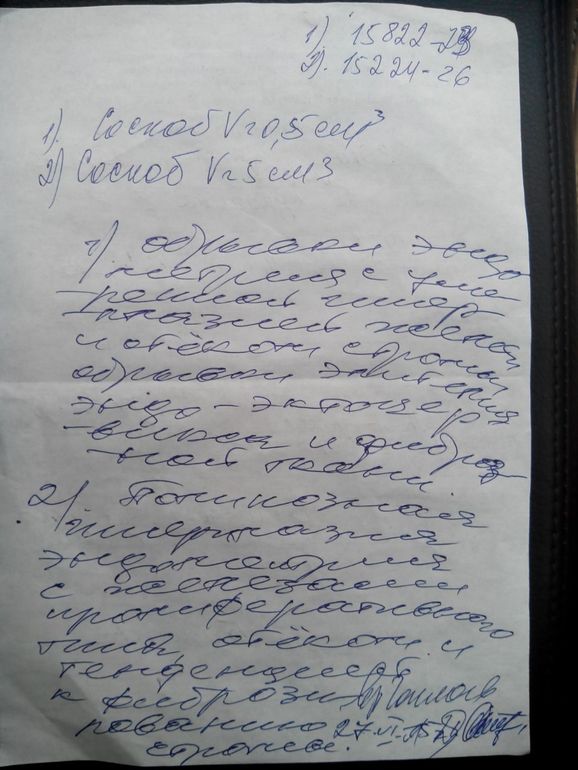 1). 15822-23
2). 15224-26
1). Соскоб V=0,5 см³
2) Соскоб V=5 см3
1) обрывки эндо
-метрия с уме
-ренной гипер
-плазией желез
и отёком стромы
обрывки эпителия
эндо-эктоцер
-викса и фиброз
-ной ткани
2) Полипозная
гиперплазия
эндометрия
с железами
пролиферативного
типа, отёком и
тенденцией
к фибрози
рованию 27.VI-15
стромы.